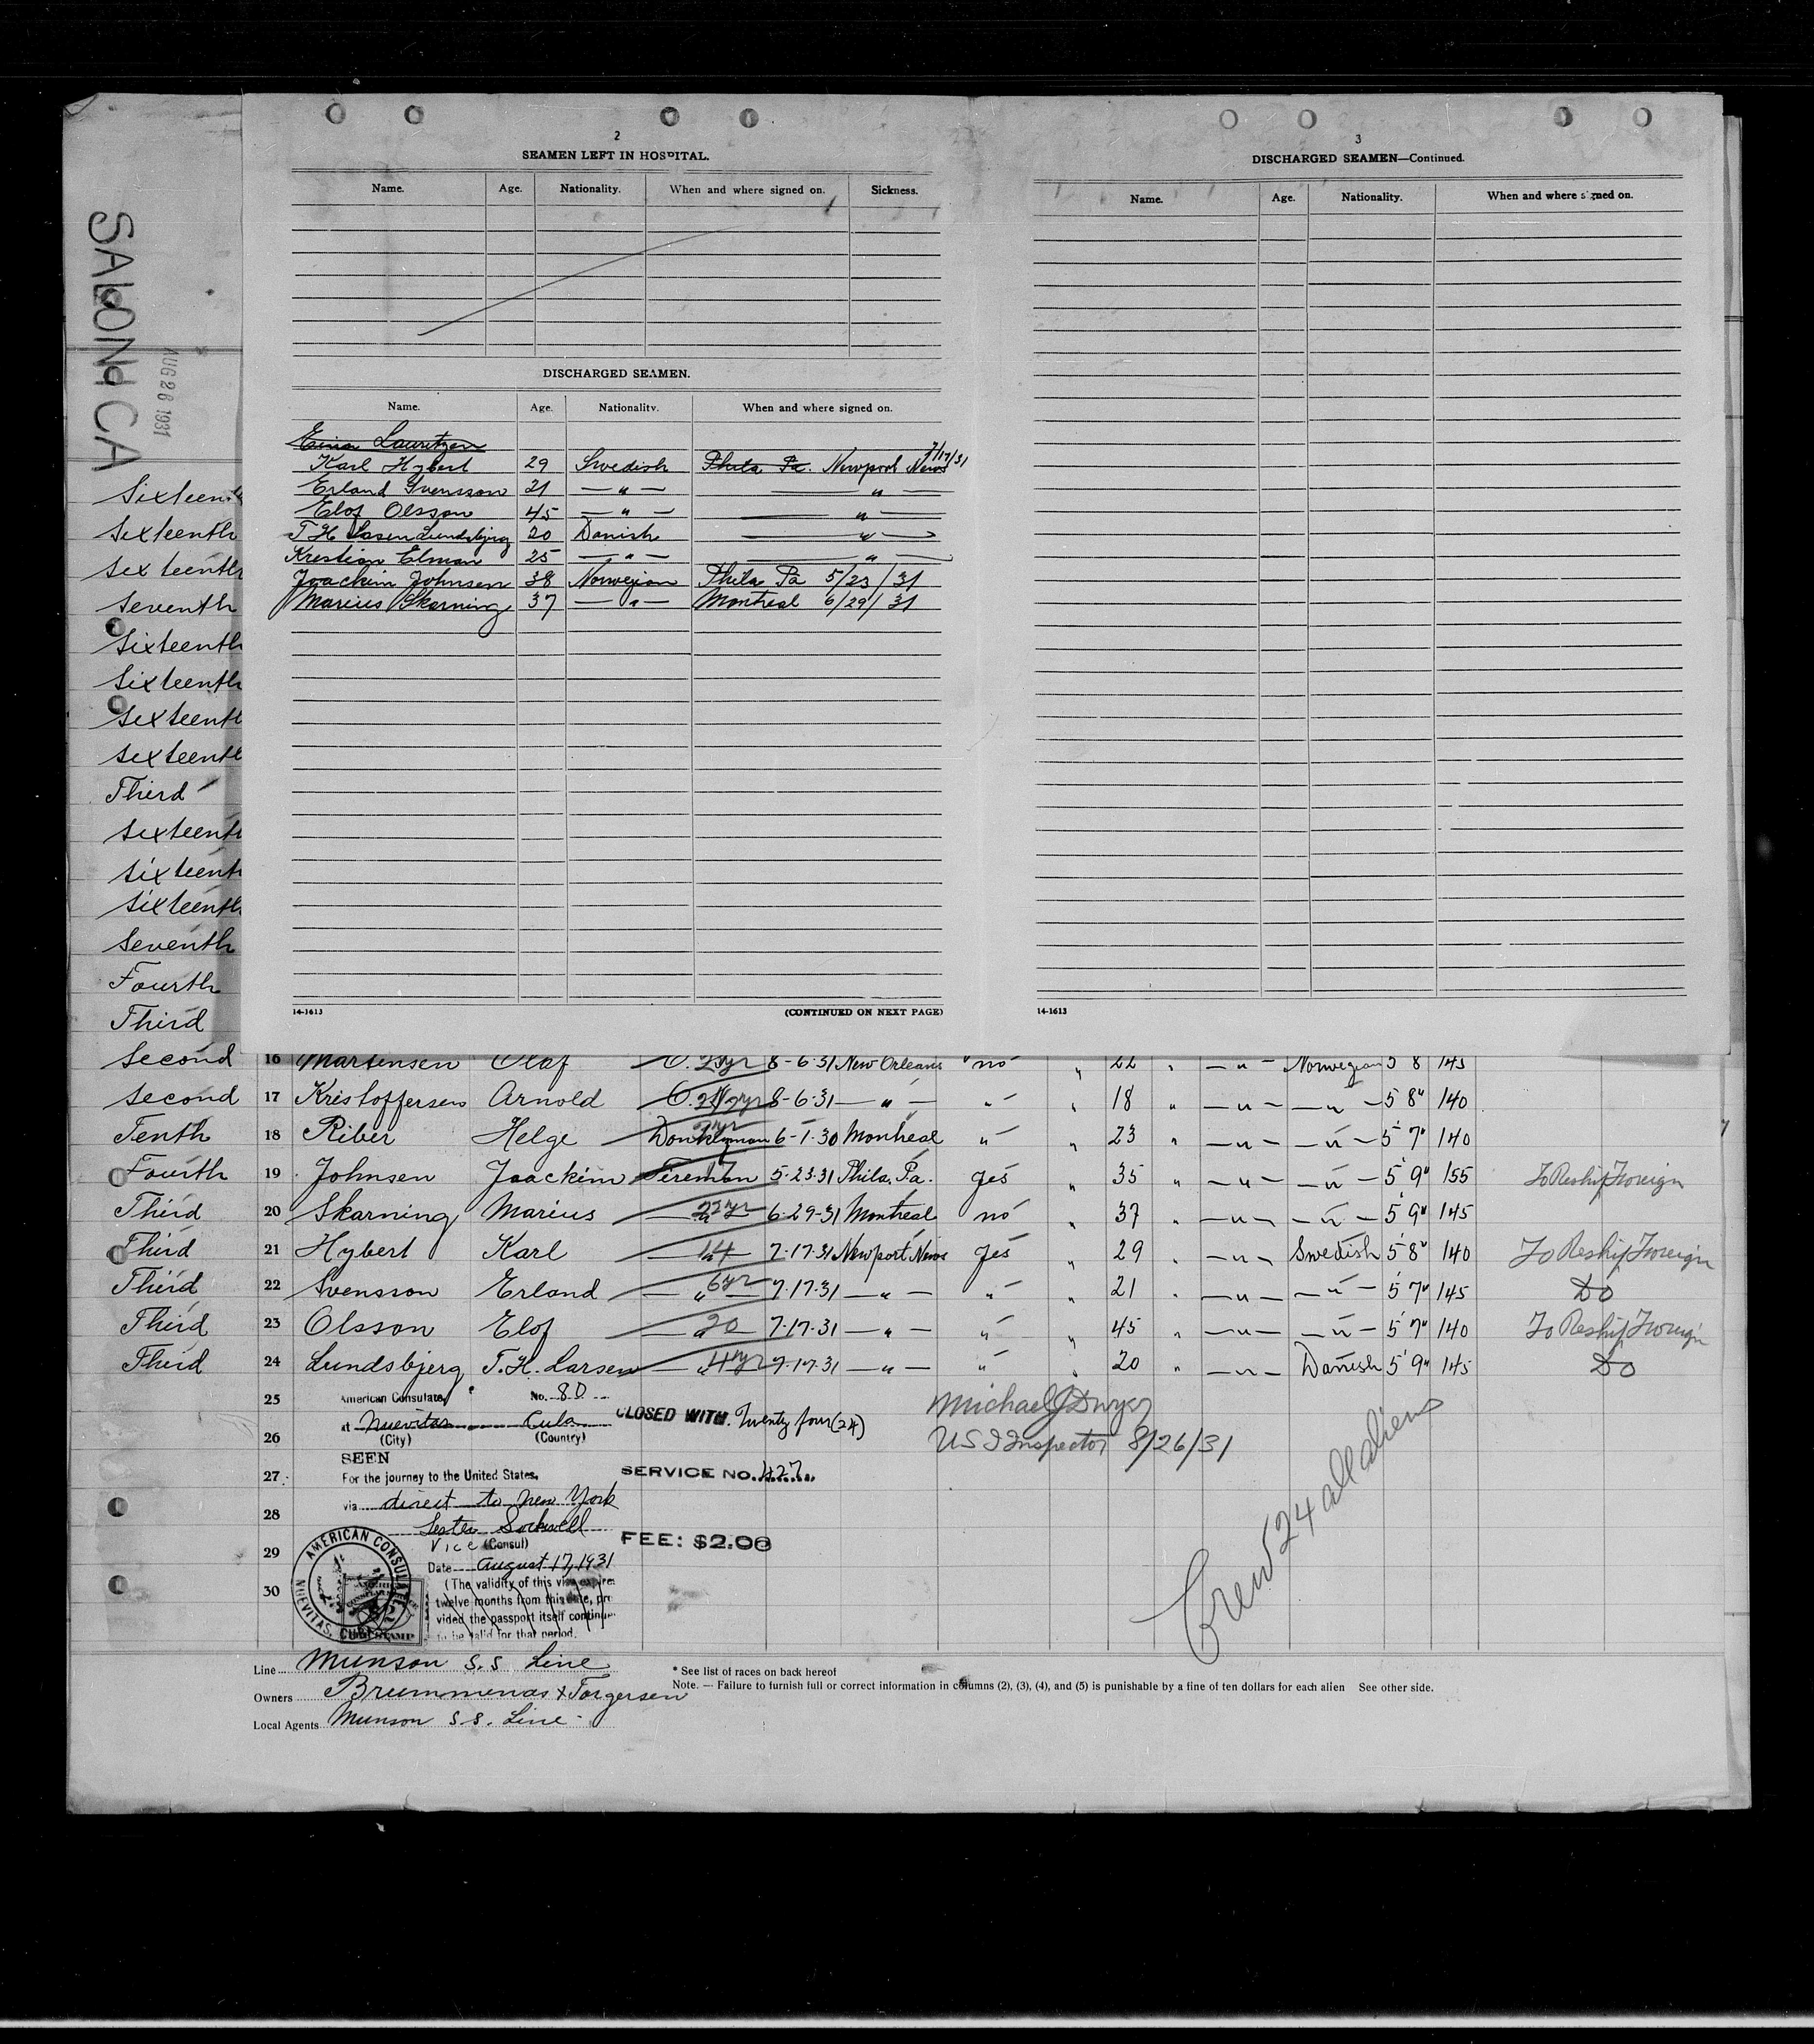 SALONICA
AUG 26 1931
2
SEAMEN LEFT IN HOSPITAL.
Name. Age. Nationality. When and where signed on. Sickness.
DISCHARGED SEAMEN.
Name. Age. Nationality. When and where signed on.
Lauritzen
Karl Hybert 29 Swedish Phila Pa. Newport News 7/17/31
Erland Svensson 21 — " — — " —
Elof Olsson 45 — " — — " —
T H Lasen Lundsbjerg 20 Danish — " —
Krestian Elman 25 — " — — " —
Joackim Johnsen 38 Norwegian Phila Pa 5/23/31
Marius Skarning 37 — " — Montreal 6/29/31
14-1613 (CONTINUED ON NEXT PAGE)
3
DISCHARGED SEAMEN—Continued.
Name. Age. Nationality. When and where signed on.
14-1613
Sixteenth
Sixteenth
Sixteenth
Seventh
Sixteenth
Sixteenth
Sixteenth
Sixteenth
Third
Sixteenth
Sixteenth
Sixteenth
Seventh
Fourth
Third
Second 16 Martensen Olaf O. 2yr 8-6-31 New Orleans no " 22 " — " — Norwegian 5 8 145
Second 17 Kristoffersen Arnold 8-6-31 — " — " " 18 " — " — — " — 5 8" 140
Tenth 18 Riber Helge Donkeyman 6-1-30 Montreal " " 23 " — " — — " — 5 7" 140
Fourth 19 Johnsen Joackim Fireman 5-23-31 Phila. Pa. yes " 35 " — " — — " — 5 9" 155 To Reship Foreign
Third 20 Skarning Marius — " — 22yr 6-29-31 Montreal no " 37 " — " — — " — 5 9" 145
Third 21 Hybert Karl — " — 14 7-17-31 Newport News yes " 29 " — " — Swedish 5 8" 140 To Reship Foreign
Third 22 Svensson Erland — " — 6yr 7-17-31 — " — " " 21 " — " — — " — 5 7" 145 Do
Third 23 Olsson Elof — " — 20 7-17-31 — " — " " 45 " — " — — " — 5 7" 140 To Reship Foreign
Third 24 Lundsbjerg T. H. Larsen — " — 4yr 7-17-31 — " — " " 20 " — " — Danish 5 9" 145 Do
25 American Consulate, No. 80
at Nuevitas Cuba CLOSED WITH. Twenty four (24) Michael J Dwyer
26 (City) (Country) U S I Inspector 8/26/31
SEEN
27 For the journey to the United States, SERVICE NO. 427
via direct to New York
28
Vice (Consul) FEE: $2.00
29 Date August 17, 1931
30 (The validity of this visa expires
twelve months from this date, pro
vided the passport itself continues
to be valid for that period.
AMERICAN CONSULATE
NUEVITAS, CUBA
Crew 24 all aliens
Line Munson S.S Line
* See list of races on back hereof
Owners Brummenas & Torgersen
Note. — Failure to furnish full or correct information in columns (2), (3), (4), and (5) is punishable by a fine of ten dollars for each alien See other side.
Local Agents Munson S.S. Line